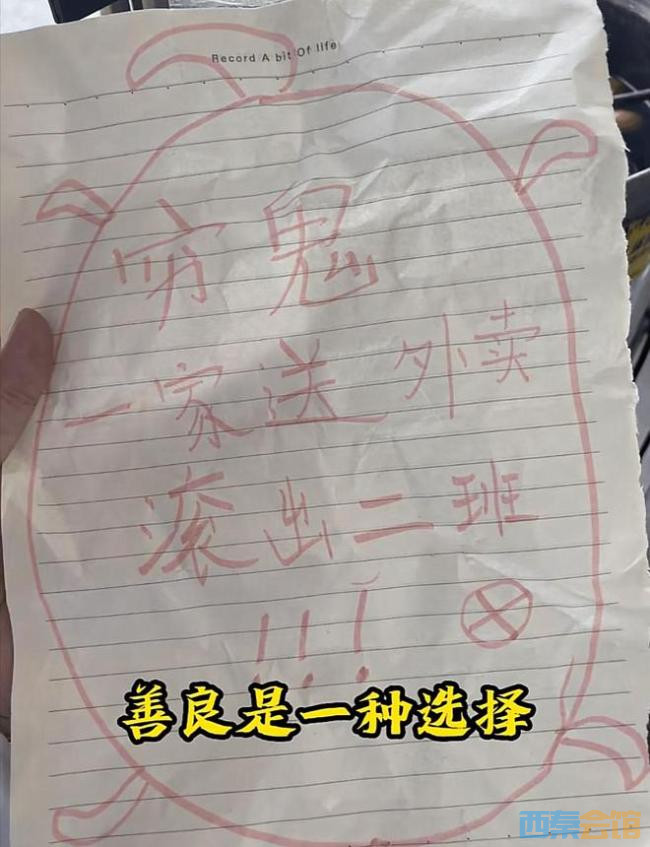 Record A bit Of life
穷鬼
一家送外卖
滚出二班
!!!
善良是一种选择
西秦会馆